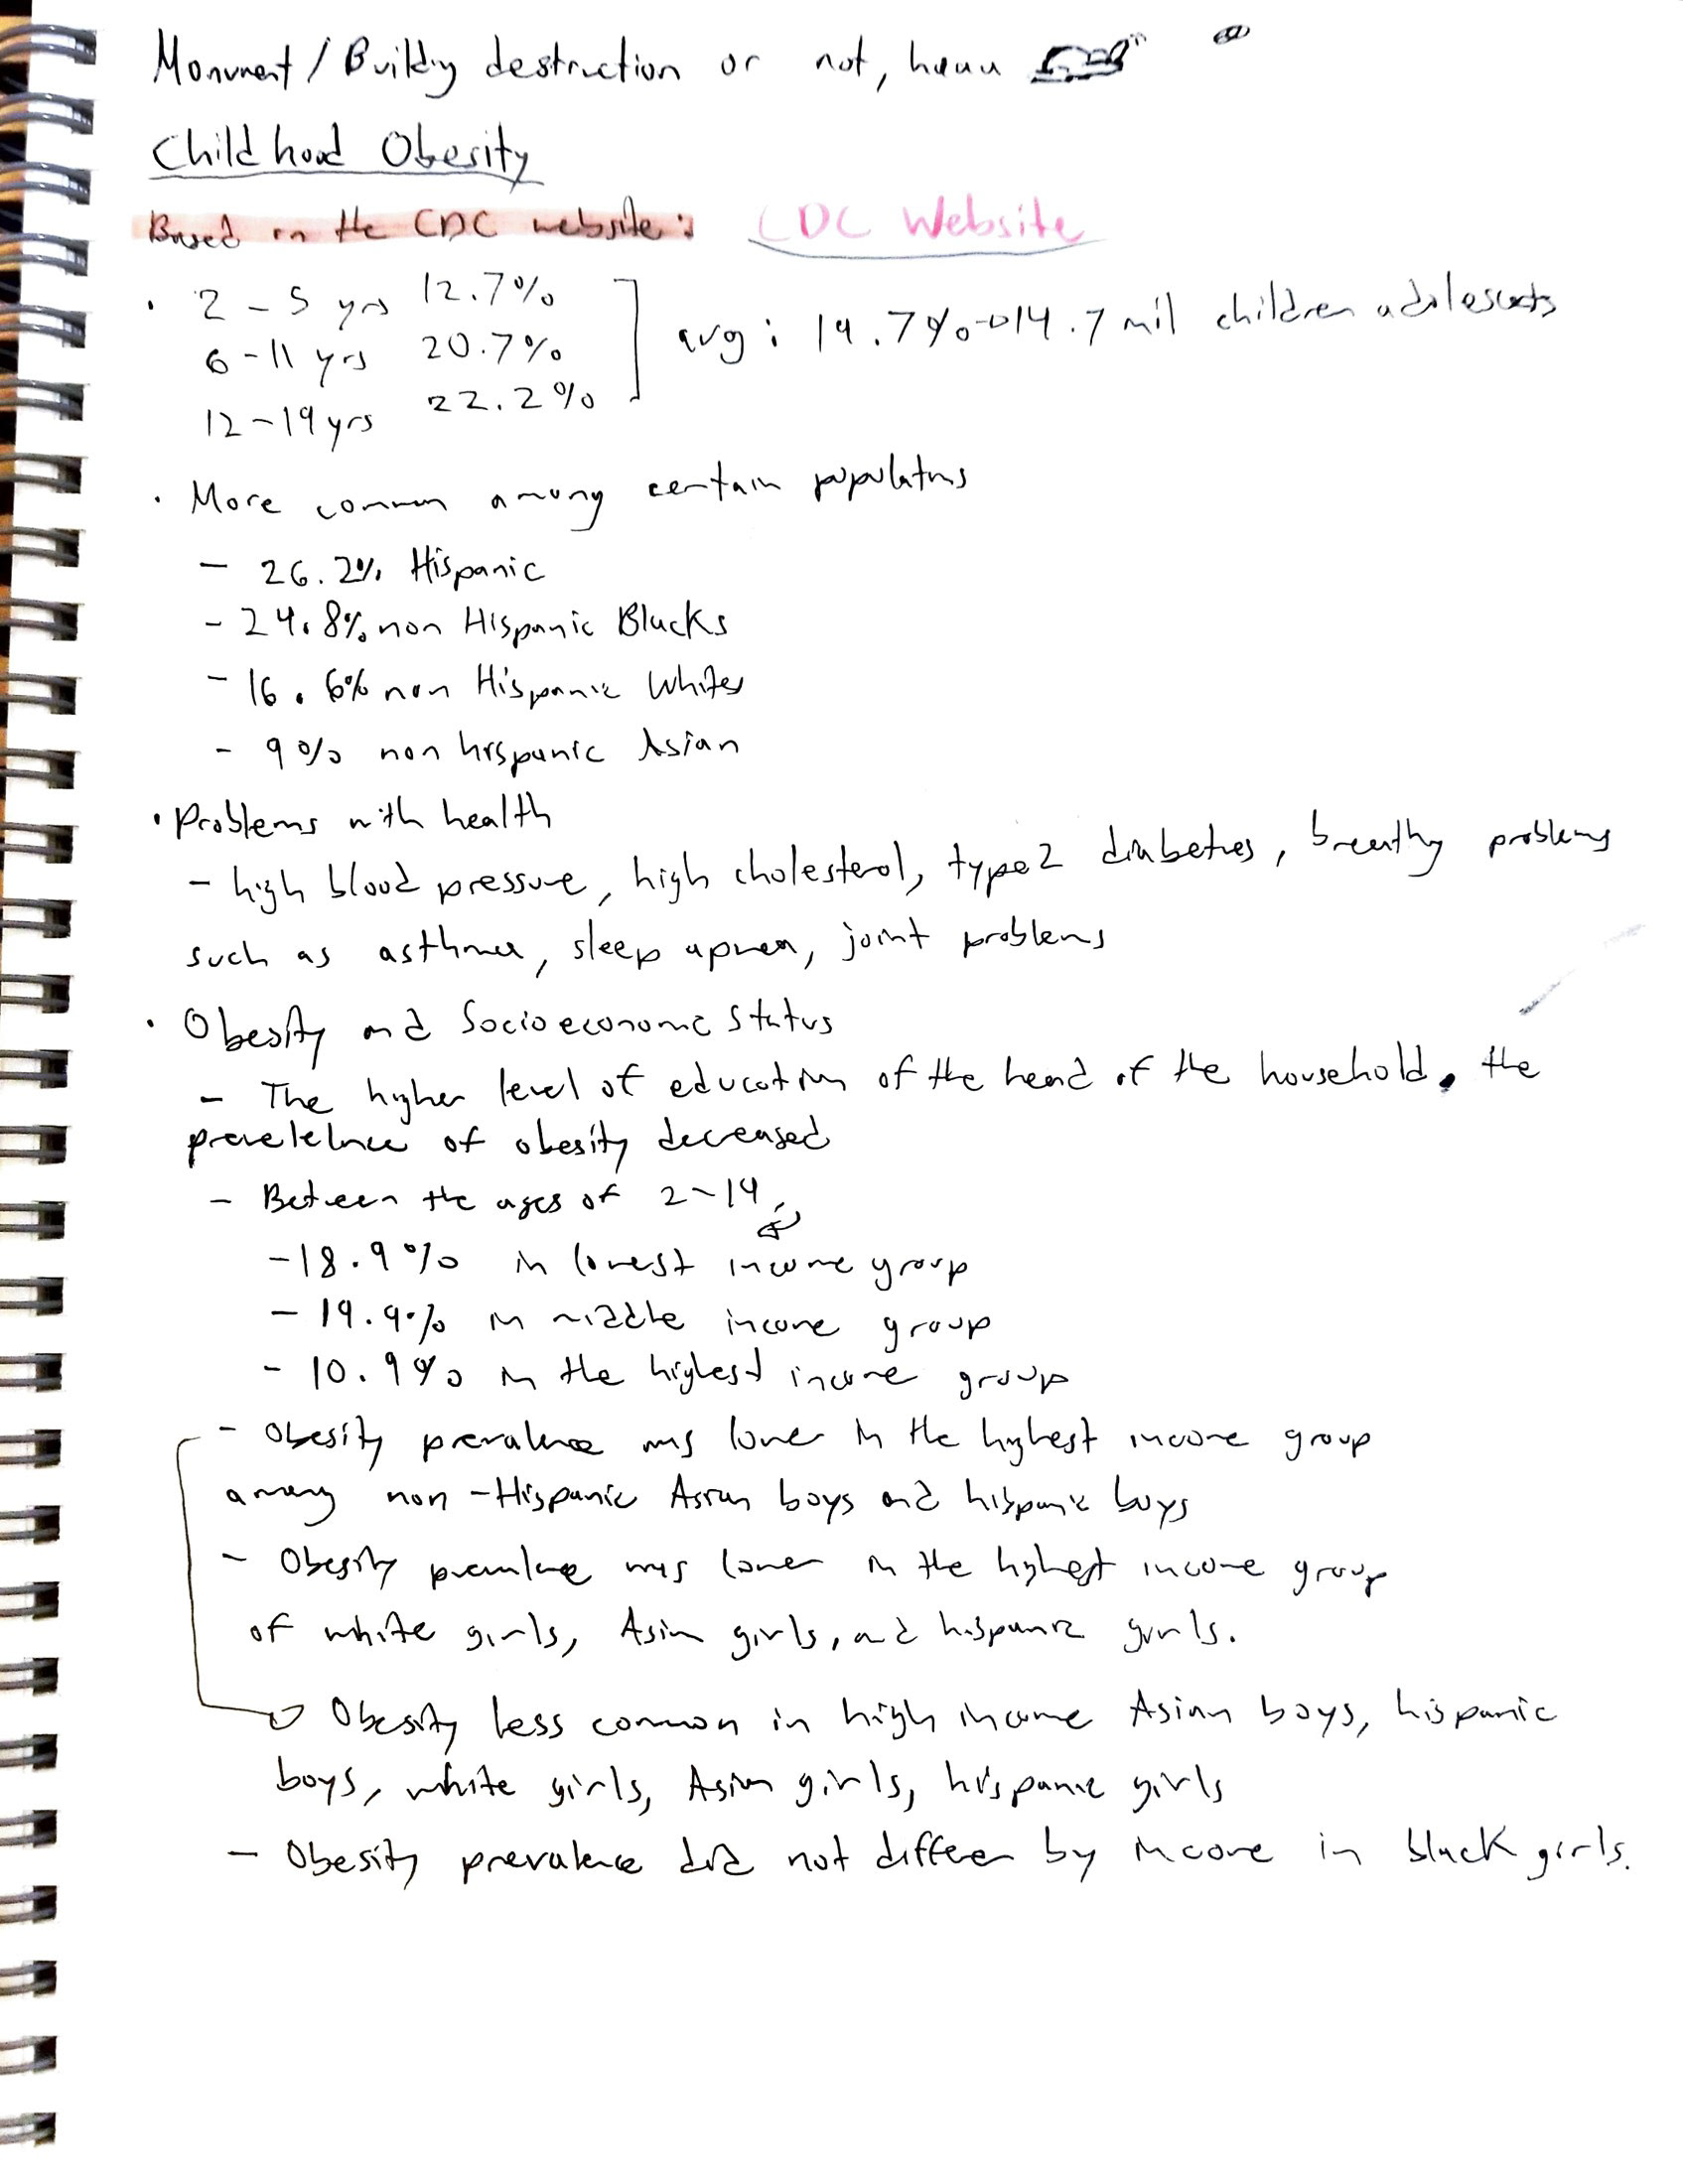 Monument / Building destruction or not,
Childhood Obesity
Based on the CDC website: CDC Website
· 2 - 5 yrs 12.7%
6 - 11 yrs 20.7%
12 - 19 yrs 22.2%
avg: 19.7% → 14.7 mil children adolescents
· More common among certain populations
- 26.2% Hispanic
- 24.8% non Hispanic Blacks
- 16.6% non Hispanic Whites
- 9% non hispanic Asian
· Problems with health
- high blood pressure, high cholesterol, type 2 diabetes, breathing problems
such as asthma, sleep apnea, joint problems
· Obesity and Socioeconomic Status
- The higher level of education of the head of the household, the
prevelelnce of obesity decreased
- Between the ages of 2-19,
- 18.9% in lowest income group
- 19.9% in middle income group
- 10.9% in the highest income group
- Obesity prevalence was lower in the highest income group
among non-Hispanic Asian boys and hispanic boys
- Obesity prevalence was lower in the highest income group
of white girls, Asian girls, and hispanic girls.
→ Obesity less common in high income Asian boys, hispanic
boys, white girls, Asian girls, hispanic girls
- Obesity prevalence did not differ by income in black girls.